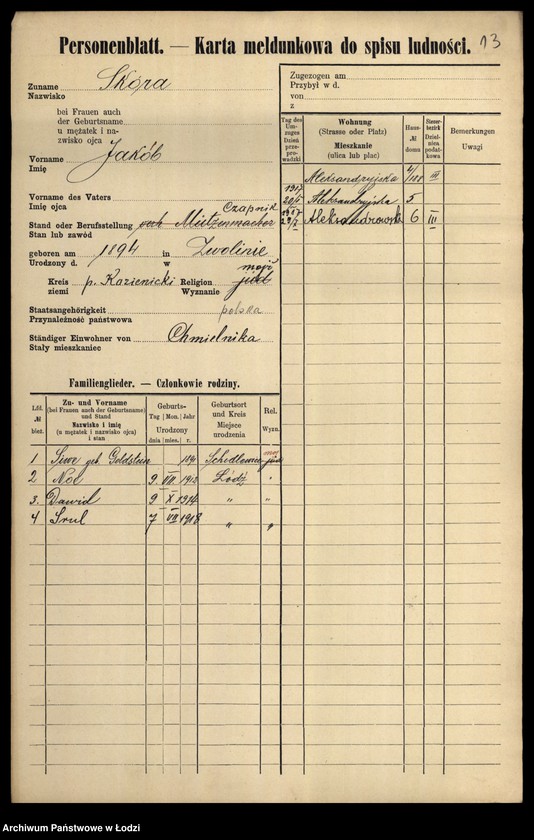 Personenblatt. — Karta meldunkowa do spisu ludności. 13
Zuname Skóra
Nazwisko
bei Frauen auch
der Geburtsname
u mężatek i na-
zwisko ojca
Vorname Jakób
Imię
Vorname des Vaters
Imię ojca
Czapnik
Stand oder Berufsstellung Mützenmacher
Stan lub zawód
geboren am 1894 in Zwolinie
Urodzony d. w
Kreis p. Kozienicki Religion mojż jüd
ziemi Wyznanie
Staatsangehörigkeit polska
Przynależność państwowa
Ständiger Einwohner von Chmielnika
Stały mieszkaniec
Zugezogen am
Przybył w d.
von
z
Tag des Um-zuges Dzień prze-prowadzki
Wohnung
(Strasse oder Platz)
Mieszkanie
(ulica lub plac)
Haus-№ domu
Steuer-bezirk Dziel-nica podat-kowa
Bemerkungen
Uwagi
Aleksandryjska 4/ III
1917 20/II Aleksandryjska 5
Aleksandrowsk 6 III
Familienglieder. — Członkowie rodziny.
Lfd. № bież.
Zu- und Vorname
(bei Frauen auch der Geburtsname)
und Stand
Nazwisko i imię
(u mężatek i nazwisko ojca)
i stan
Geburts-
Tag Mon. Jahr
Urodzony
dnia mies. r.
Geburtsort
und Kreis
Miejsce
urodzenia
Rel.
Wyzn.
1 Siwe geb. Goldstein 1891
2 Noe 9 VII 1912 Łódź "
3. Dawid 9 X 1914 " "
4 Srul 7 VII 1918 " "
Archiwum Państwowe w Łodzi